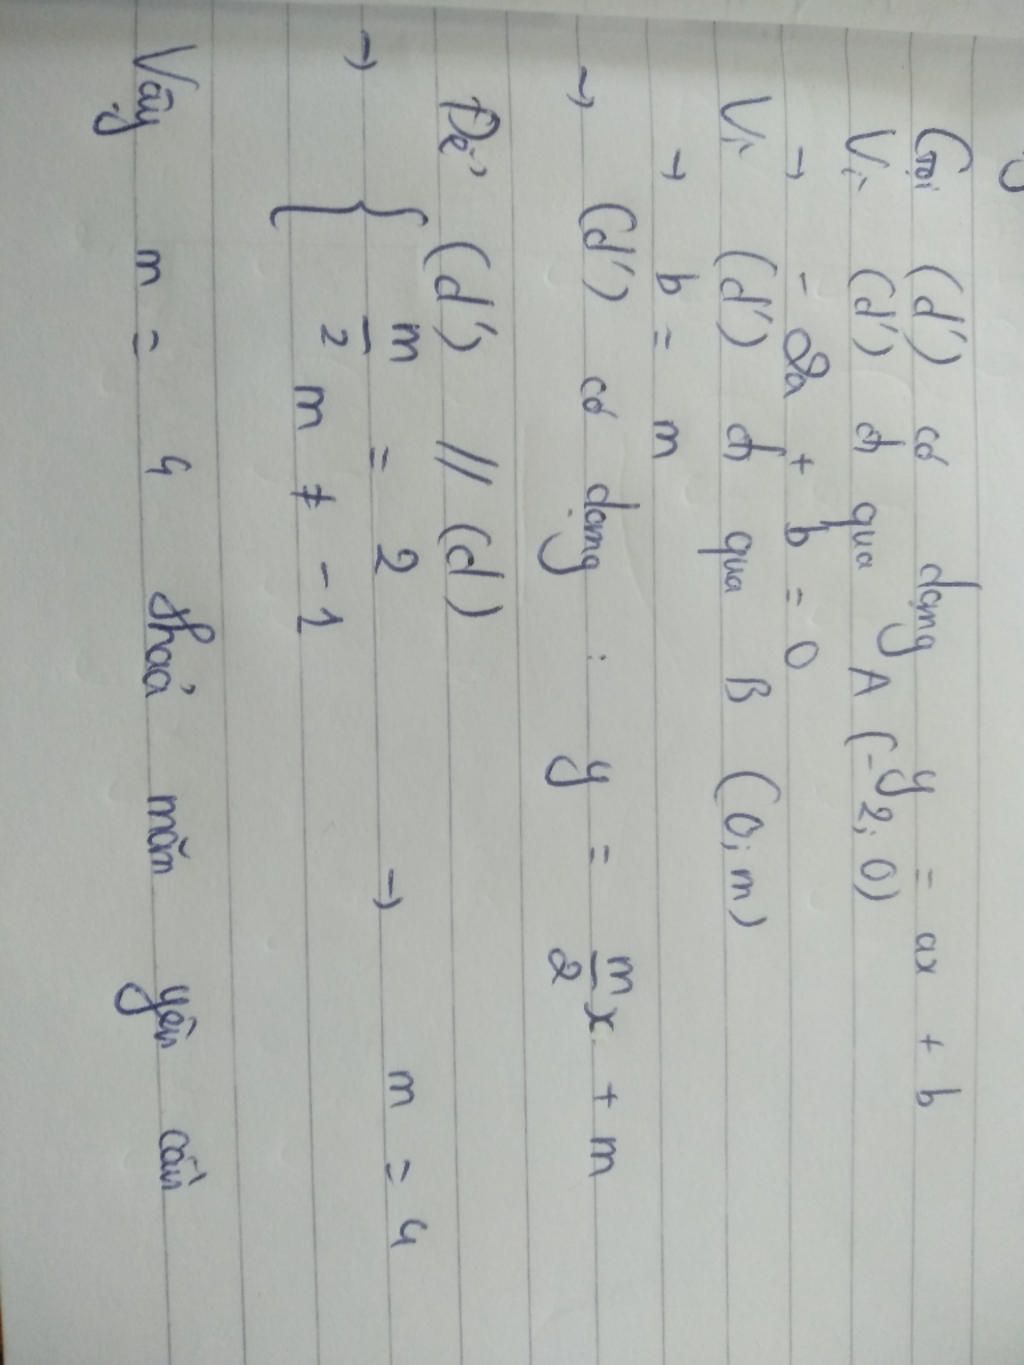 Gọi (d') có dạng y = ax + b
Vì (d') đi qua A (-2; 0)
→ - 2a + b = 0
Vì (d') đi qua B (0; m)
→ b = m
→ (d') có dạng : y = m/2 x + m
Để (d') // (d)
→ { m/2 = 2 → m = 4
m ≠ -1
Vậy m = 4 thoả mãn yêu cầu